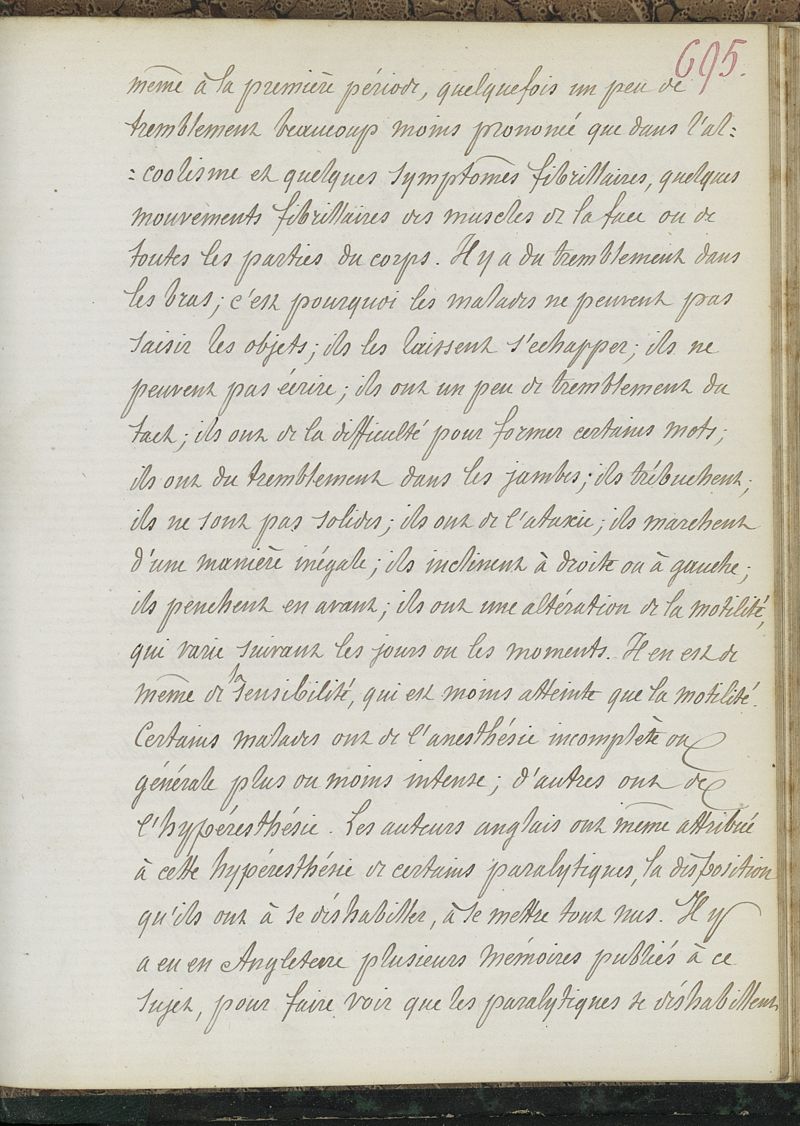 695.
même à la première période, quelquefois un peu de
tremblement beaucoup moins prononcé que dans l'al=
=coolisme et quelques symptômes fibrillaires, quelques
mouvements fibrillaires des muscles de la face ou de
toutes les parties du corps. Il y a du tremblement dans
les bras; c'est pourquoi les malades ne peuvent pas
saisir les objets; ils les laissent s'echapper; ils ne
peuvent pas écrire; ils ont un peu de tremblement du
tact; ils ont de la difficulté pour former certains mots;
ils ont du tremblement dans les jambes; ils trébuchent;
ils ne sont pas solides; ils ont de l'ataxie; ils marchent
d'une manière inégale; ils inclinent à droite ou à gauche;
ils penchent en avant; ils ont une altération de la motilité,
qui varie suivant les jours ou les moments. Il en est de
même de l'sensibilité, qui est moins atteinte que la motilité.
Certains malades ont de l'anesthésie incomplète ou
générale plus ou moins intense; d'autres ont de
l'hypéresthésie. Les auteurs anglais ont même attribué
à cette hypéresthésie de certains paralytiques, la disposition
qu'ils ont à se déshabiller, à se mettre tout nus. Il y
a eu en Angleterre plusieurs mémoires publiés à ce
sujet, pour faire voir que les paralytiques se déshabillent